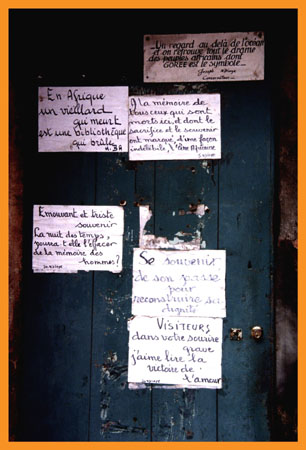 Un regard au delà de l'océan
et on retrouve tout le drame
des peuples africains dont
GOREE est le symbole...
Joseph N'Diaye
Conservateur
En Afrique
un vieillard
qui meurt
est une bibliothèque
qui brûle
A la mémoire de
tous ceux qui sont
morts ici, et dont le
sacrifice et le souvenir
ont marqué d'une façon
indélébile l'Afrique
Emouvant et triste
souvenir
La nuit des temps,
pourra t'elle l'effacer
de la mémoire des
hommes?
Se souvenir
de son passé
pour
reconstruire sa
dignité
VISITEURS
dans votre sourire
grave
j'aime lire la
victoire de
l'amour